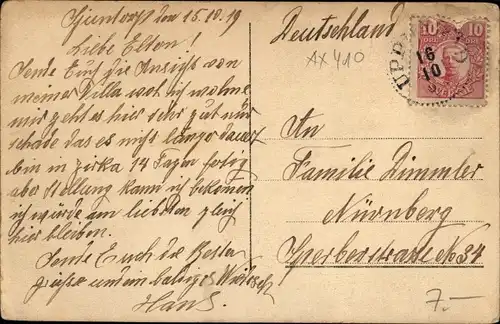 den 15.10.19
Liebe Eltern!
Sende Euch die Ansicht von
meiner Villa wo ich wohne
mir geht es hier sehr gut nur
schade das es nicht länger dauert
bin in zirka 14 Tagen fertig
aber Stellung kann ich bekommen
ich würde am liebsten gleich
hier bleiben.
Sende Euch die Besten
Grüsse und ein baldiges Wiederseh
Hans.
Deutschland
AX410
10 10
16
10
SVERIGE
An
Familie Zimmler
Nürnberg
Sperberstrasse No 34
7.-